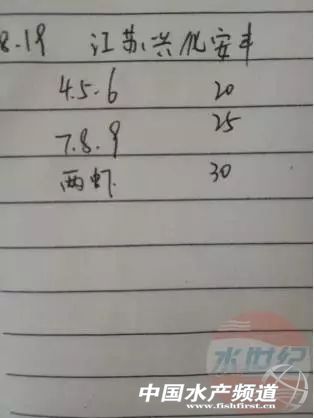 8.19 江苏兴化安丰
4.5.6 20
7.8.9 25
两虾 30
水世纪
中国水产频道
www.fishfirst.cn